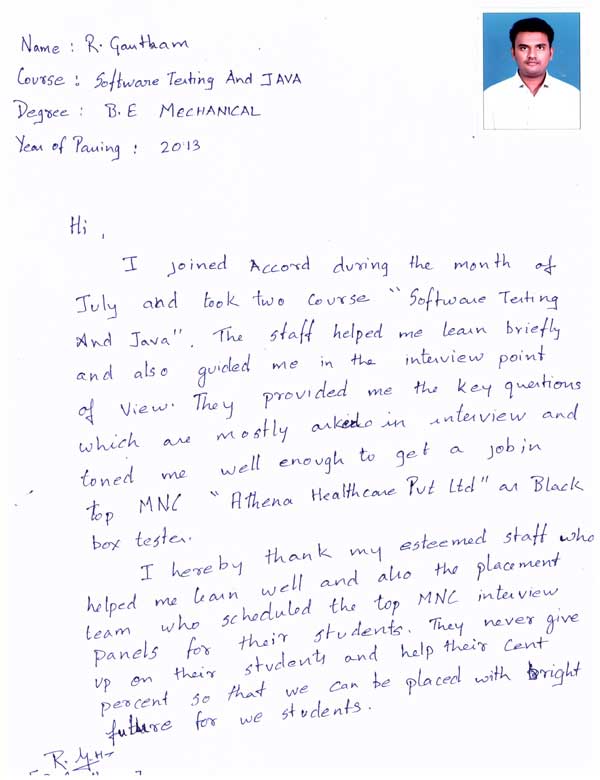 Name : R. Gautham
Course : Software Testing And JAVA
Degree : B.E MECHANICAL
Year of Passing : 2013
Hi ,
I joined Accord during the month of
July and took two course "Software Testing
And Java". The staff helped me learn briefly
and also guided me in the interview point
of View. They provided me the key questions
which are mostly asked in interview and
toned me well enough to get a job in
top MNC "Athena Healthcare Pvt Ltd" as Black
box tester.
I hereby thank my esteemed staff who
helped me learn well and also the placement
team who scheduled the top MNC interview
panels for their students. They never give
up on their students and help their cent
percent so that we can be placed with bright
future for we students.